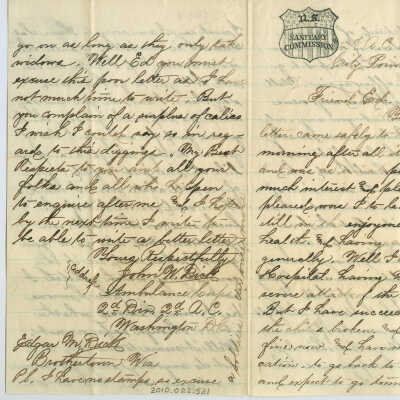 go on as long as they only take
widows. Well Ed you must
excuse this poor letter as I have
not much time to write. But
you complain of a surplus of calico
I wish I could say so in reg-
ard to this diggings. My Best
Respects to you and all your
folks and all who
to enquire after me & I hope
by the next time I write to
be able to write a better letter
Yours Respectfully
John W. Rick
Ambulance Corps
2d Div. 2d A.C.
Washington D.C.
Edgar M. Rick
Brothertown Wis
P.S. I have no stamps so excuse
2010.002.561
U.S.
SANITARY
COMMISSION
City Point
Friend Ed.
letter came safely to
morning after all
and was
much interest & plea
pleased was I to
still in the enjoyment
health. & having
generally. Well I
Hospital having
severe attack of the
But I have succeed
the chills broken &
fine now & have
cation to go back to
and expect to go down